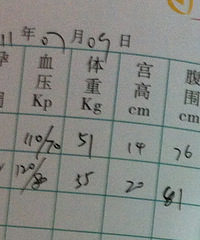 11 年 07 月 09 日
血压 Kp 体重 Kg 宫高 cm 腹围 cm
110/70 51 14 76
120/80 55 20 81